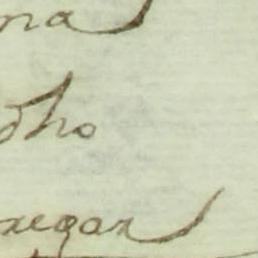 na
dho
negar